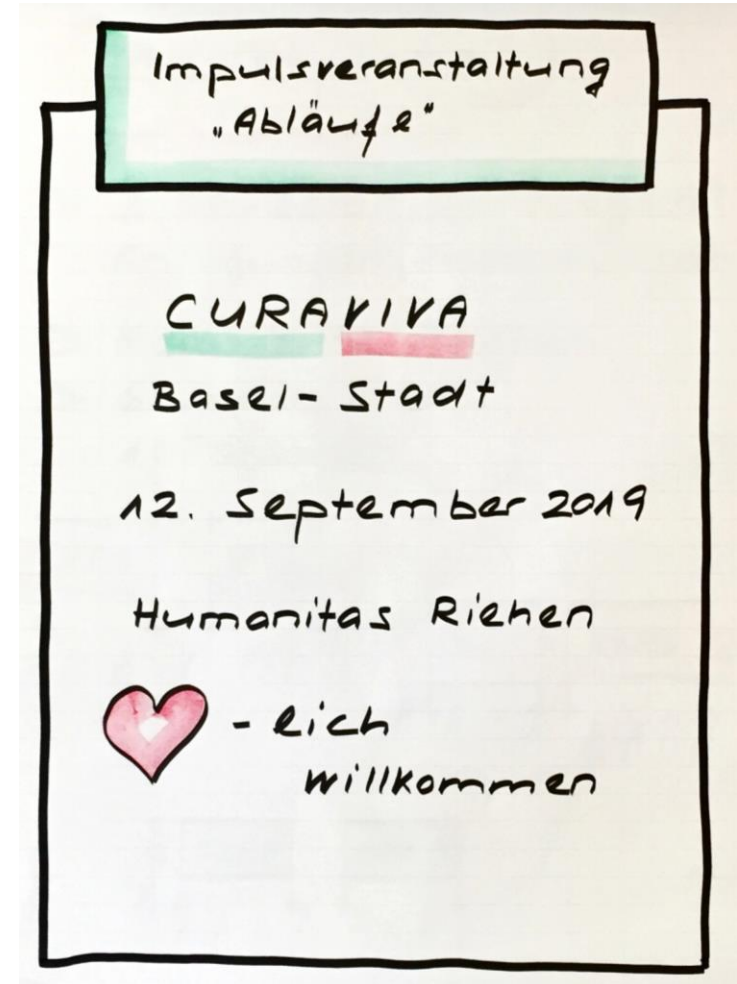 Impulsveranstaltung
„Abläufe"
CURAVIVA
Basel-Stadt
12. September 2019
Humanitas Riehen
-lich
willkommen